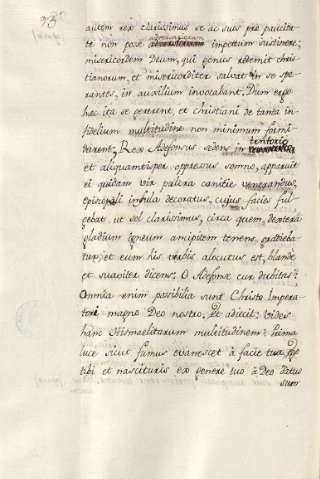 autem rex clarissimus se ac suis præ paucita-
te non posse adversariorum impetum sustinere;
misericordem Deum, qui genus redemit chris-
tianorum, et misericorditer salvat in se spe-
rantes, in auxilium invocabant. Dum ergo
hæc ita se gererent, et christiani de tanta in-
fidelium multitudine non minimum formi-
darent; Rex Adefonsus sedens in tentorio
et aliquantisper oppressus somno, apparuit
ei quidam vir pulcra canitie venerandus,
episcopali infula decoratus, cujus facies ful-
gebat ut sol clarissimus, circa quem, dextera
gladium igneum ancipitem tenens, gradieba-
tur, et eum his verbis alocutus est, blande
et suaviter dicens: O Adefonse cur dubitas?
Omnia enim possibilia sunt Christo Impera-
tori magno Deo nostro. Et adiecit: Vides
hanc Hismaelitarum multitudinem? prima
luce sicut fumus evanescet à facie tua,
tibi et nascituris ex genere tuo à Deo datus
sum